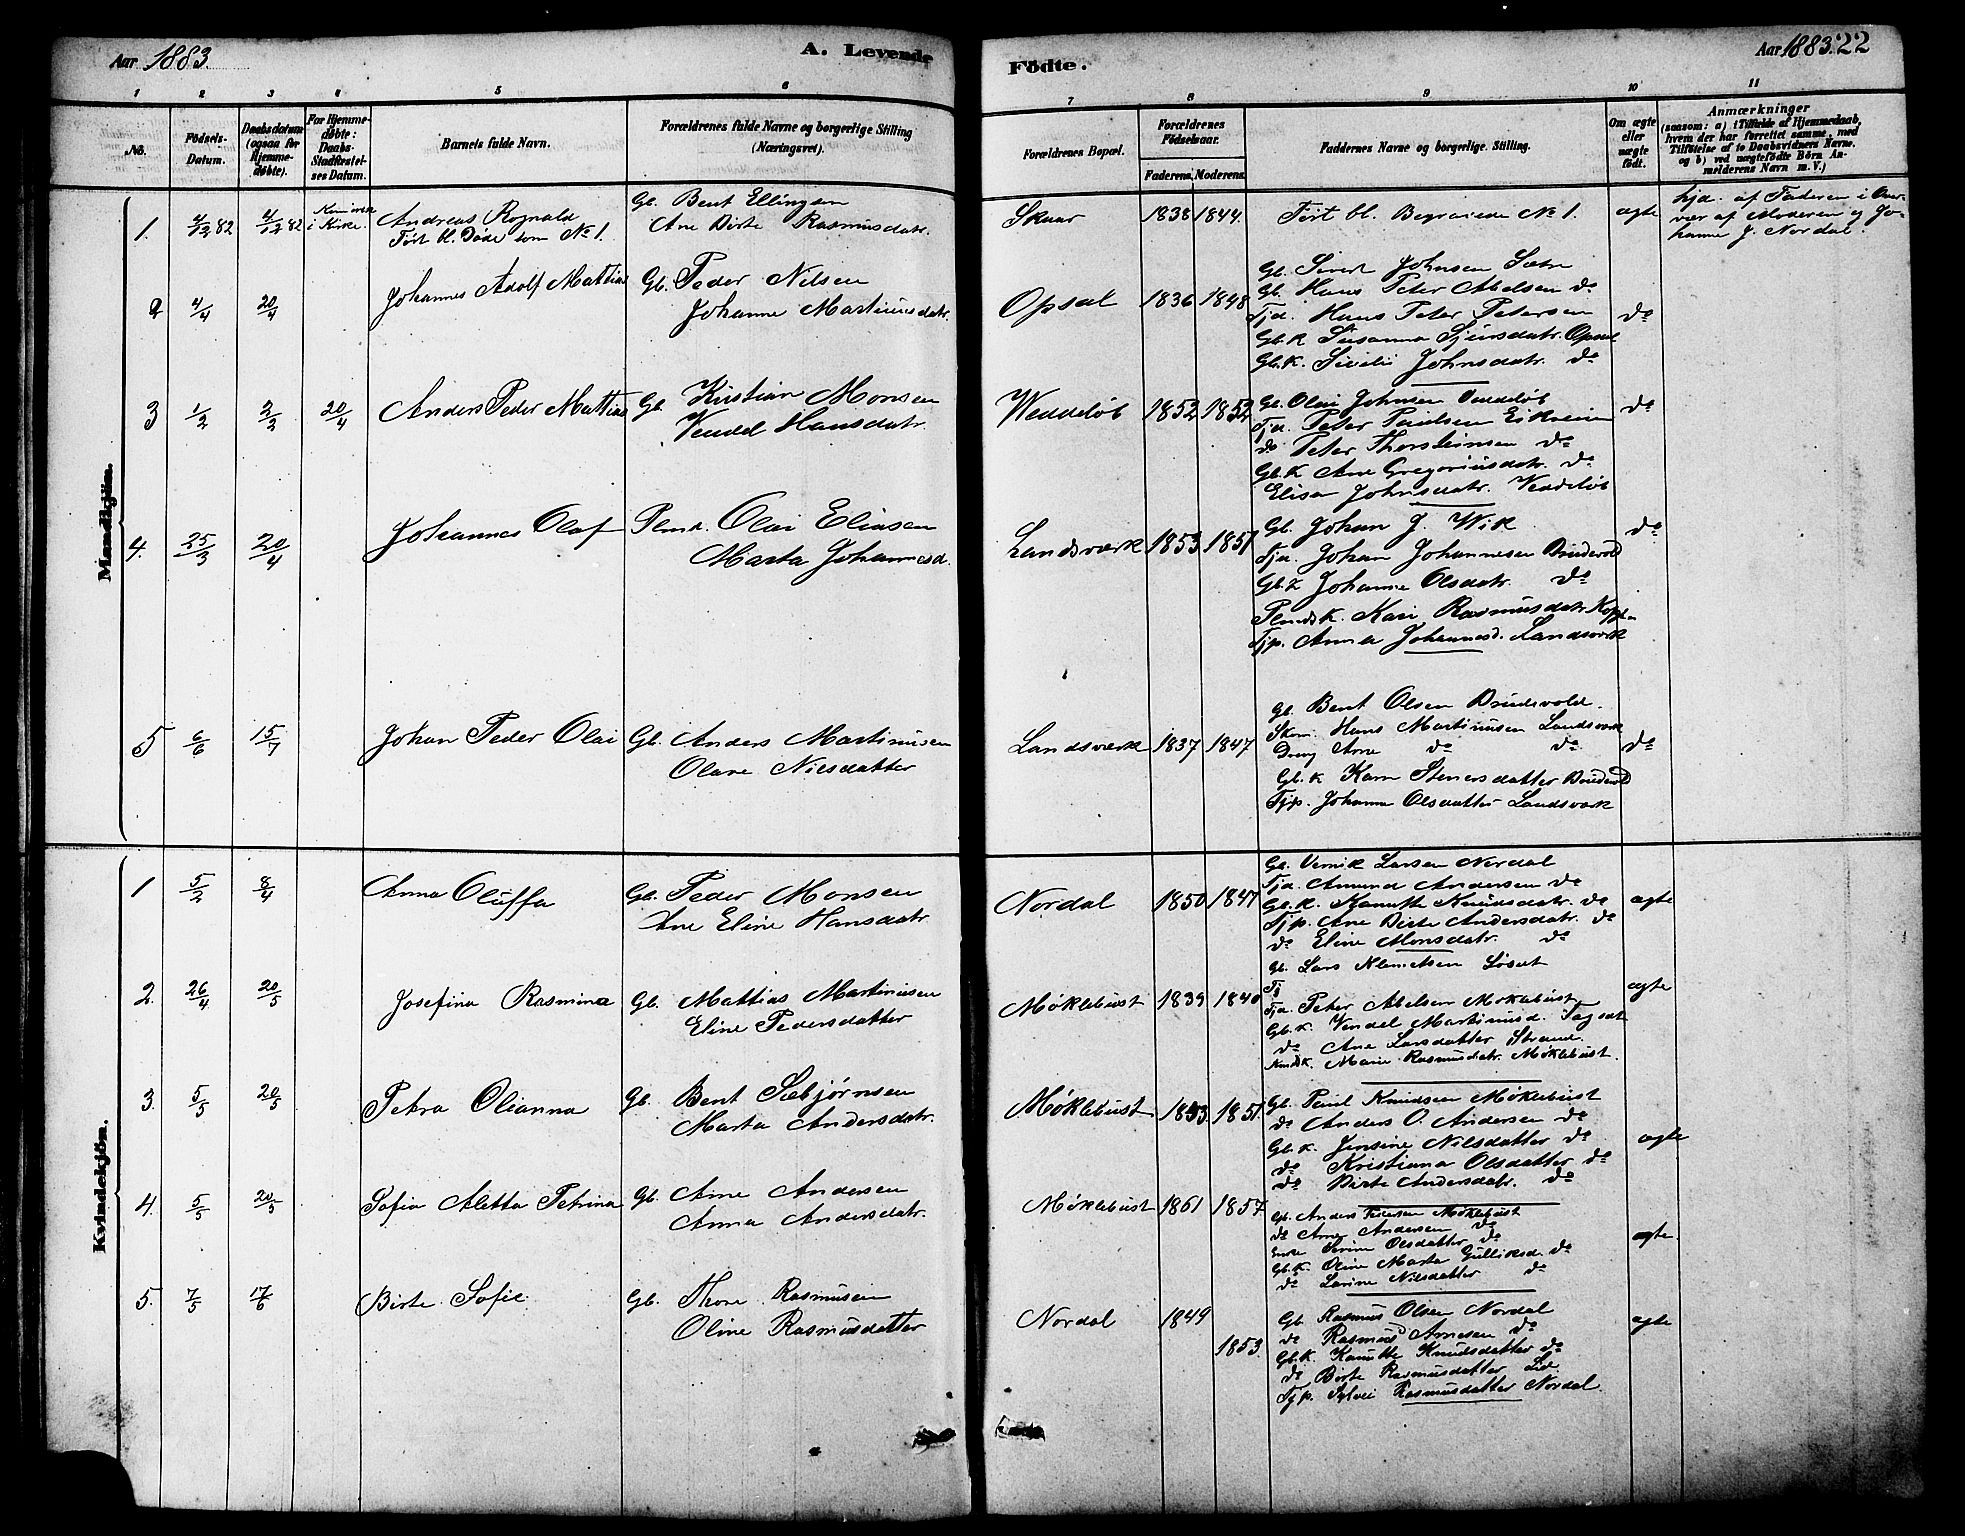 Aar 1883.
A. Levende
Födte.
Aar 1883. 22
1 2 3 4 5 6
7 8 9 10 11
No.
Födsels-Datum.
Daabsdatum (ogsaa for Hjemme-döbte).
For Hjemme-döbte: Daabs-Stadfæstelses Datum.
Barnets fulde Navn.
Forældrenes fulde Navne og borgerlige Stilling (Næringsvei).
Forældrenes Bopæl.
Forældrenes Födselsaar.
Faderens. Moderens.
Faddernes Navne og borgerlige Stilling.
Om ægte eller uægte födt.
Anmærkninger
(saasom: a) i Tilfælde af Hjemmedaab, hvem der har forrettet samme, med Tilföielse af to Daabsvidners Navne, og b) ved uægtefödte Börn Anmelderens Navn m. V.)
Mandkjön.
1. 4/12 82 4/12 82
i Kirke.
Andreas Rognald
Ført bl. Døde som No 1.
Gb. Bent Ellingsen
Ane Birte Rasmusdatr.
Skaar 1838 1844.
Ført bl. Begravede No 1.
ægte
hjd. af Faderen i Over-
vær af Moderen og Jo-
hanne J. Nordal.
2 4/4 20/4
Johannes Adolf Mattias
Gb. Peder Nilsen
Johanne Martinusdatr.
Opsal 1836 1848
Gb. Sivert Johnsen Sætre
Gb. Hans Peter Abelsen do
Tjd. Hans Peter Petersen
Gb.K Susanna Sjursdatr. Opsal
Gb.K. Sivilie Johnsdatr. do
do
3 1/2 2/2 20/4
Anders Peder Mattias
Gb. Kristian Monsen
Vendel Hansdatr.
Weddeløb 1852 1852
Gb. Olai Johnsen Veddeløb
Tjd. Peter Paulsen Eikrem
do Peter Thorsteinsen do
Gb.K Ane Gregoriusdatr. do
Elisa Johnsdatr. Veddeløb
do
4. 25/3 20/4
Johannes Olaf
Olai Eliasen
Marta Johannesd.
Landsværk 1853 1851
Gb. Johan J. Wik
Tjd. Johan Johannesen Brudevold
Gb.K Johanne Olsdatr. do
Kari Rasmusdatr.
Tjp. Anna Johannesd. Landsværk
do
5 6/6 15/7
Johan Peder Olai
Gb. Anders Martinusen
Olave Nilsdatter
Landsværk 1837 1847
Gb. Bent Olsen Brudevold.
Skom. Hans Martinusen Landsværk
Dreng Arne do do
Gb.K Karn Steinersdatter Brudevold
Tjp. Johanne Olsdatter Landsværk
do
Kvindekjön.
1 5/2 8/4
Anna Oluffa
Gb. Peder Monsen
Ane Eline Hansdatr.
Nordal 1850 1847
Gb. Vernik Larsen Nordal
Tjd. Amund Andersen do
Gb.K. Kanutte Knudsdatr. do
Tjp. Ane Birte Andersdatr. do
do Eline Monsdatr. do
ægte
2. 26/4 20/5
Josefina Rasmina
Gb. Mattias Martinusen
Eline Pedersdatter
Møklebust 1839 1840
Gb. Lars Klemetsen Løset
Tj
Tjd. Peter Abelsen Møklebust
Gb.K. Vendel Martinusd.
do Ane Larsdatter Strand.
Marie Rasmusdatr. Møklebust.
ægte
3. 5/5 20/5
Petra Olianna
Gb. Bent Sæbjørnsen
Marta Andersdatr.
Møklebust 1853. 1851.
Gb. Paul Knudsen Møklebust
do Anders O. Andersen do
Gb.K. Jensine Nilsdatter do
do Kristiana Olsdatter do
do Birte Andersdatr. do
ægte
4. 5/5 20/5
Sofia Aletta Petrina
Gb. Arne Andersen
Anna Andersdatr.
Møklebust 1861 1857
Gb. Anders Petersen Møklebust
do Arne Andersen do
Enke Serine Olsdatter do
Gb.K. Oline Marta Gulliksd. do
do Larine Nilsdatter do
ægte
5. 7/5 17/6
Birte Sofie
Gb. Thore Rasmusen
Oline Rasmusdatter
Nordal 1849
1853
Gb Rasmus Olsen Nordal
do Rasmus Arnesen do
Gb.K. Kanutte Knudsdatter do
do Birte Rasmusdatter Lid.
Tjp. Sylvei Rasmusdatter Nordal.
ægte